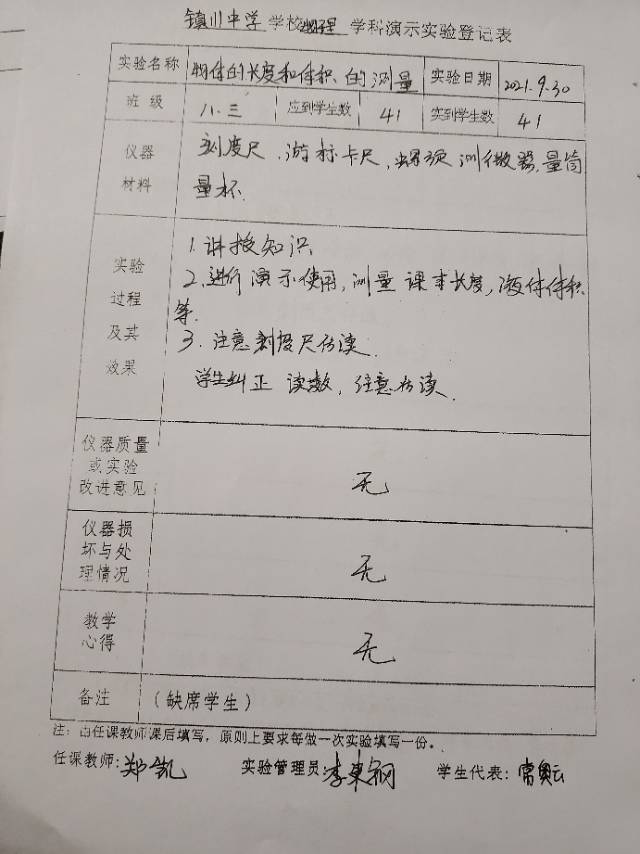 镇川中学 学校物理 学科演示实验登记表
实验名称 物体的长度和体积的测量 实验日期 2021.9.30
班级 八.三 应到学生数 41 实到学生数 41
仪器 刻度尺,游标卡尺,螺旋测微器,量筒
材料 量杯.
实验 1.讲授知识
过程 2.进行演示使用,测量课本长度,液体体积
等.
及其 3.注意刻度尺估读.
效果 学生纠正读数,注意估读.
仪器质量
或实验
改进意见 无
仪器损
坏与处
理情况 无
教学
心得 无
备注 (缺席学生)
注:由任课教师课后填写,原则上要求每做一次实验填写一份。
任课教师:郑凯 实验管理员:李东钢 学生代表:常